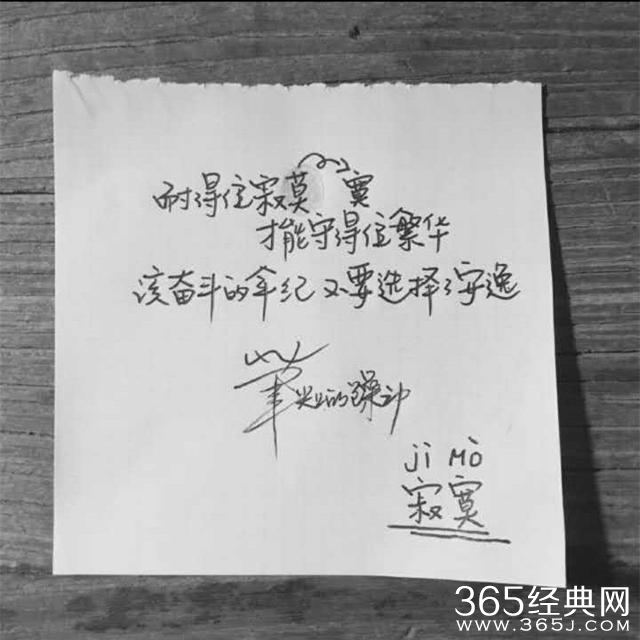 耐得住寂莫 寞
才能守得住繁华
该奋斗的年纪不要选择了安逸
笔尖的躁动
Jì MÒ
寂寞
365经典网
WWW.365J.COM